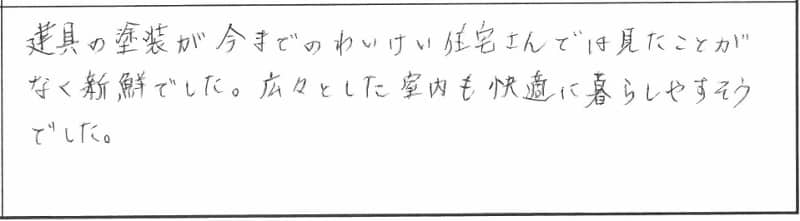 建具の塗装が今までのわいけい住宅さんでは見たことが
なく新鮮でした。広々とした室内も快適に暮らしやすそう
でした。